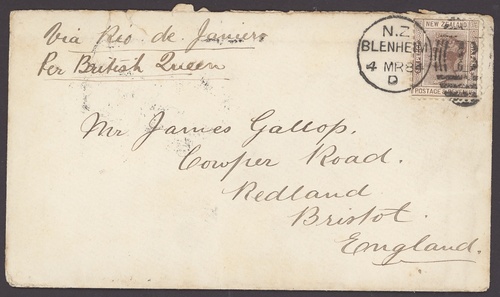 Via Rio de Janiero
Per British Queen
N.Z
BLENHEIM
4 MR 8
D
NEW ZEALAND
POSTAGE
Mr James Gallop.
Cowper Road.
Redland
Bristol.
England.